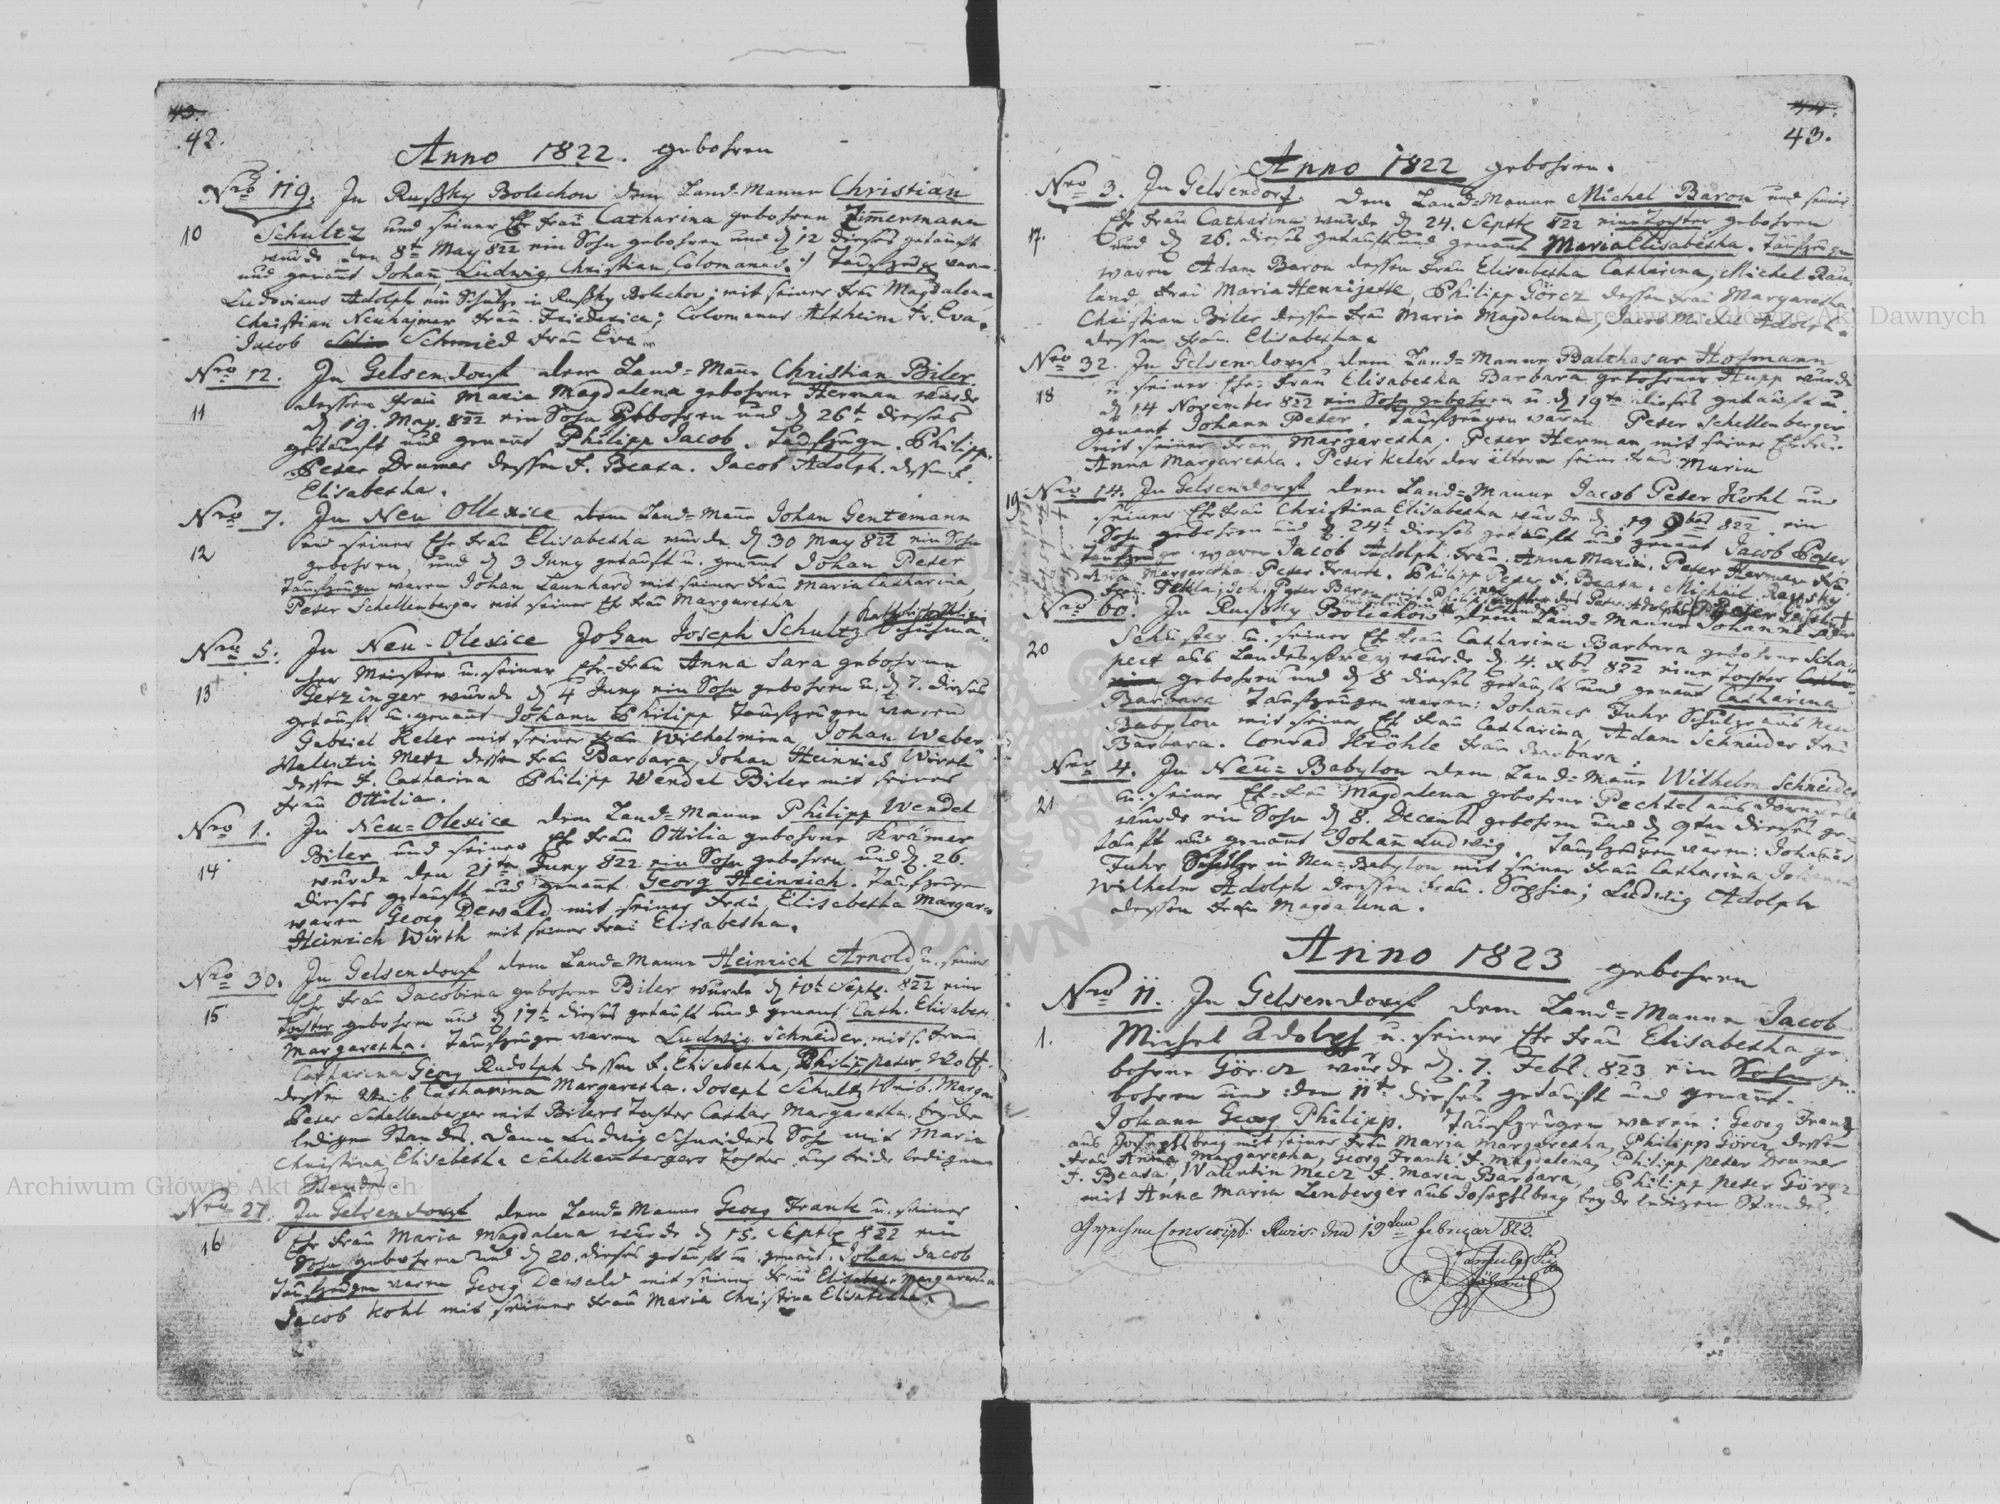 43.
42.
Anno 1822. gebohren
Nro 119. In Rußky Bolechow dem Land-Mann Christian
10 Schultz und seiner Ehe frau Catharina gebohren Zimermann
wurde den 8ten May 822 ein Sohn gebohren und d 12 dieses getauft
und genant Johan Ludwig Christian Colomanus. Taufzeugen waren
Ludovicus Adolph ein Schulze in Rußky Bolechow; mit seiner frau Magdalena
Christian Neuhajmer frau Friederica; Colomanus Altheim fr. Eva.
Jacob Schmied frau Eva
Nro 12. In Gelsendorf dem Land-Mann Christian Biler
11 dessen frau Maria Magdalena gebohrne Herman wurde
d 19. May. 822 ein Sohn gebohren und d 26t dieses
getauft und genant Philipp Jacob. Taufzeugen. Philipp
Peter Drumer dessen f. Beata. Jacob Adolph. dessen f.
Elisabetha.
Nro 7. In Neu Olexice dem Land-Mann Johan Gentemann
12 und seiner Ehe frau Elisabetha wurde d 30 May 822 ein Sohn
gebohren, und d 3 Juny getauft u. genant Johan Peter
Taufzeugen waren Johan Launhard mit seiner frau Maria Catharina,
Peter Schellenberger mit seiner Eh frau Margaretha
Nro 5. In Neu-Olexice Johan Joseph Schultz Schuhma-
13 her Meister u. seiner Ehe-frau Anna Sara gebohrne
Getzinger wurde d 4 Juny ein Sohn gebohren u. d 7. dieses
getauft u. genant Johann Philipp Taufzeugen waren
Gabriel Keler mit seiner Wilhelmina, Johan Weber
Valentin Metz dessen frau Barbara, Johan Heinrich Wirth
dessen f. Catharina Philipp Wendel Biler mit seiner
frau Ottilia.
Nro 1. In Neu-Olexice dem Land-Mann Philipp Wendel
14 Biler und seiner Ehe frau Ottilia gebohrne Krämer
wurde den 21ten Juny 822 ein Sohn gebohren und d. 26.
dieses getauft und genant Georg Heinrich. Taufzeugen
waren Georg Dewald mit seiner frau, Elisabetha Margar.
Heinrich Wirth mit seiner frau Elisabetha.
Nro 30. In Gelsendorf dem Land-Manne Heinrich Arnold u. seiner
15 Ehe frau Jacobina gebohrne Biler wurde d 10t Sept. 822 eine
Tochter gebohren und d 17t dieses getauft und genant Cath. Elisabet.
Margaretha. Taufzeugen waren Ludwig Schneider. mit s. frau
Catharina Georg Rudolph dessen f. Elisabetha, Philipp peter Wolf.
dessen Weib Catharina Margaretha. Joseph Schultz Weib. Marga
Peter Schellenberger mit Bilers Tochter Cathar Margaretha. beyde
ledigen Standes. dann Ludwig Schneiders Sohn mit Maria
Christina Elisabetha Schellembergers Tochter auch beide ledigen
Standes.
Nro 27. In Gelsendorf dem Land-Manne Georg Frank u. seiner
16 Ehe frau Maria Magdalena wurde d 15. Septbr 822 ein
Sohn gebohren und d 20. dieses getauft u. genant. Johan Jacob
Taufzeugen waren Georg Dewald mit seiner frau Elisabet. Margaretha
Jacob Kohl mit seiner frau Maria Christina Elisabetha.
44.
43.
Anno 1822 gebohren.
Nro 3. In Gelsendorf. dem Land-Manne Michel Baron und seiner
Ehe frau Catharina wurde d 24. Septb 822 eine Tochter gebohren
17. und d 26. dieses getauft und genant Maria Elisabetha. Taufzeugen
waren Adam Baron dessen frau Elisabetha Catharina, Michel Rau
land frau Maria Hennigette, Philipp Görcz dessen frau Margaretha
Christian Biler dessen frau Maria Magdalena, Jacob Michel Adolph
dessen frau. Elisabetha
Nro 32. In Gelsendorf dem Land-Manne Balthasar Hofmann
18 u seiner Ehe-frau Elisabetha Barbara gebohrner Hupp wurde
d 14 November 822 ein Sohn gebohren u. d 19ten dieses getauft u.
genant Johann Peter. Taufzeugen waren Peter Schellenberger
mit seiner frau Margaretha. Peter Herman mit seiner Eh frau
Anna Margaretha. Peter Keler der ältern seine frau Maria
19 Nro 14. In Gelsendorf dem Land-Manne Jacob Peter Kohl und
seiner Ehe frau Christina Elisabetha wurde d. 19 9ber 822. ein
Sohn gebohren und d. 24t dieses getauft und genant Jacob Peter
Taufzeuge waren Jacob Adolph frau. Anna Maria. Peter Herman frau
Ana Margaretha Peter Franck. Philipp Peter f. Beata. Michael Raysky
Nro 60. In Rußky Bolechow dem Land-Manne Johann Peter
20 Schuster u. seiner Eh frau Catharina Barbara gebohrne Scha
pert aus Landestreu wurde d. 4. xbr 822 eine Tochter
gebohren und d 8 dieses getauft und genant Catharina
Barbara Taufzeugen waren: Johannes Fuhr Schulze aus Neu
Babylon mit seiner Eh frau Catharina, Adam Schneider frau
Barbara. Conrad Kröhle frau Barbara:
Nro 4. In Neu-Babylon dem Land-Mann Wilhelm Schneider
21 u. seiner Eh-frau Magdalena gebohrne Pechtel aus
wurde ein Sohn d 8. Decemb gebohren und d 9ten dieses ge-
tauft und genant Johann Ludwig. Taufzeugen waren: Johannes
Fuhr Schulze in Neu-Babylon mit seiner frau Catharina,
Wilhelm Adolph dessen frau. Sophia; Ludwig Adolph
dessen frau Magdalena.
Anno 1823 gebohren
Nro 11. In Gelsendorf dem Land-Manne Jacob
1. Michel Adolph u. seiner Ehe frau Elisabetha ge-
bohrne Görcz wurde d. 7. Feb. 823 ein Sohn ge-
bohren und den 11te dieses getauft und genant.
Johann Georg Philipp. Taufzeugen waren: Georg Frank
aus Josephsberg mit seiner frau Maria Margaretha, Philipp Görcz dessen
frau Anna Margaretha, Georg Frank f. Magdalena, Philipp Peter Drumer
f. Beata, Valentin Mecz f. Maria Barbara, Philipp Peter Görcz
mit Anna Maria Lenberger aus Josephsberg beyde ledigen Standes.
Gesehen Conscript: Revis: den 19ten februar 823.
Archiwum Główne Akt Dawnych
Archiwum Główne Akt Dawnych
DAWNY